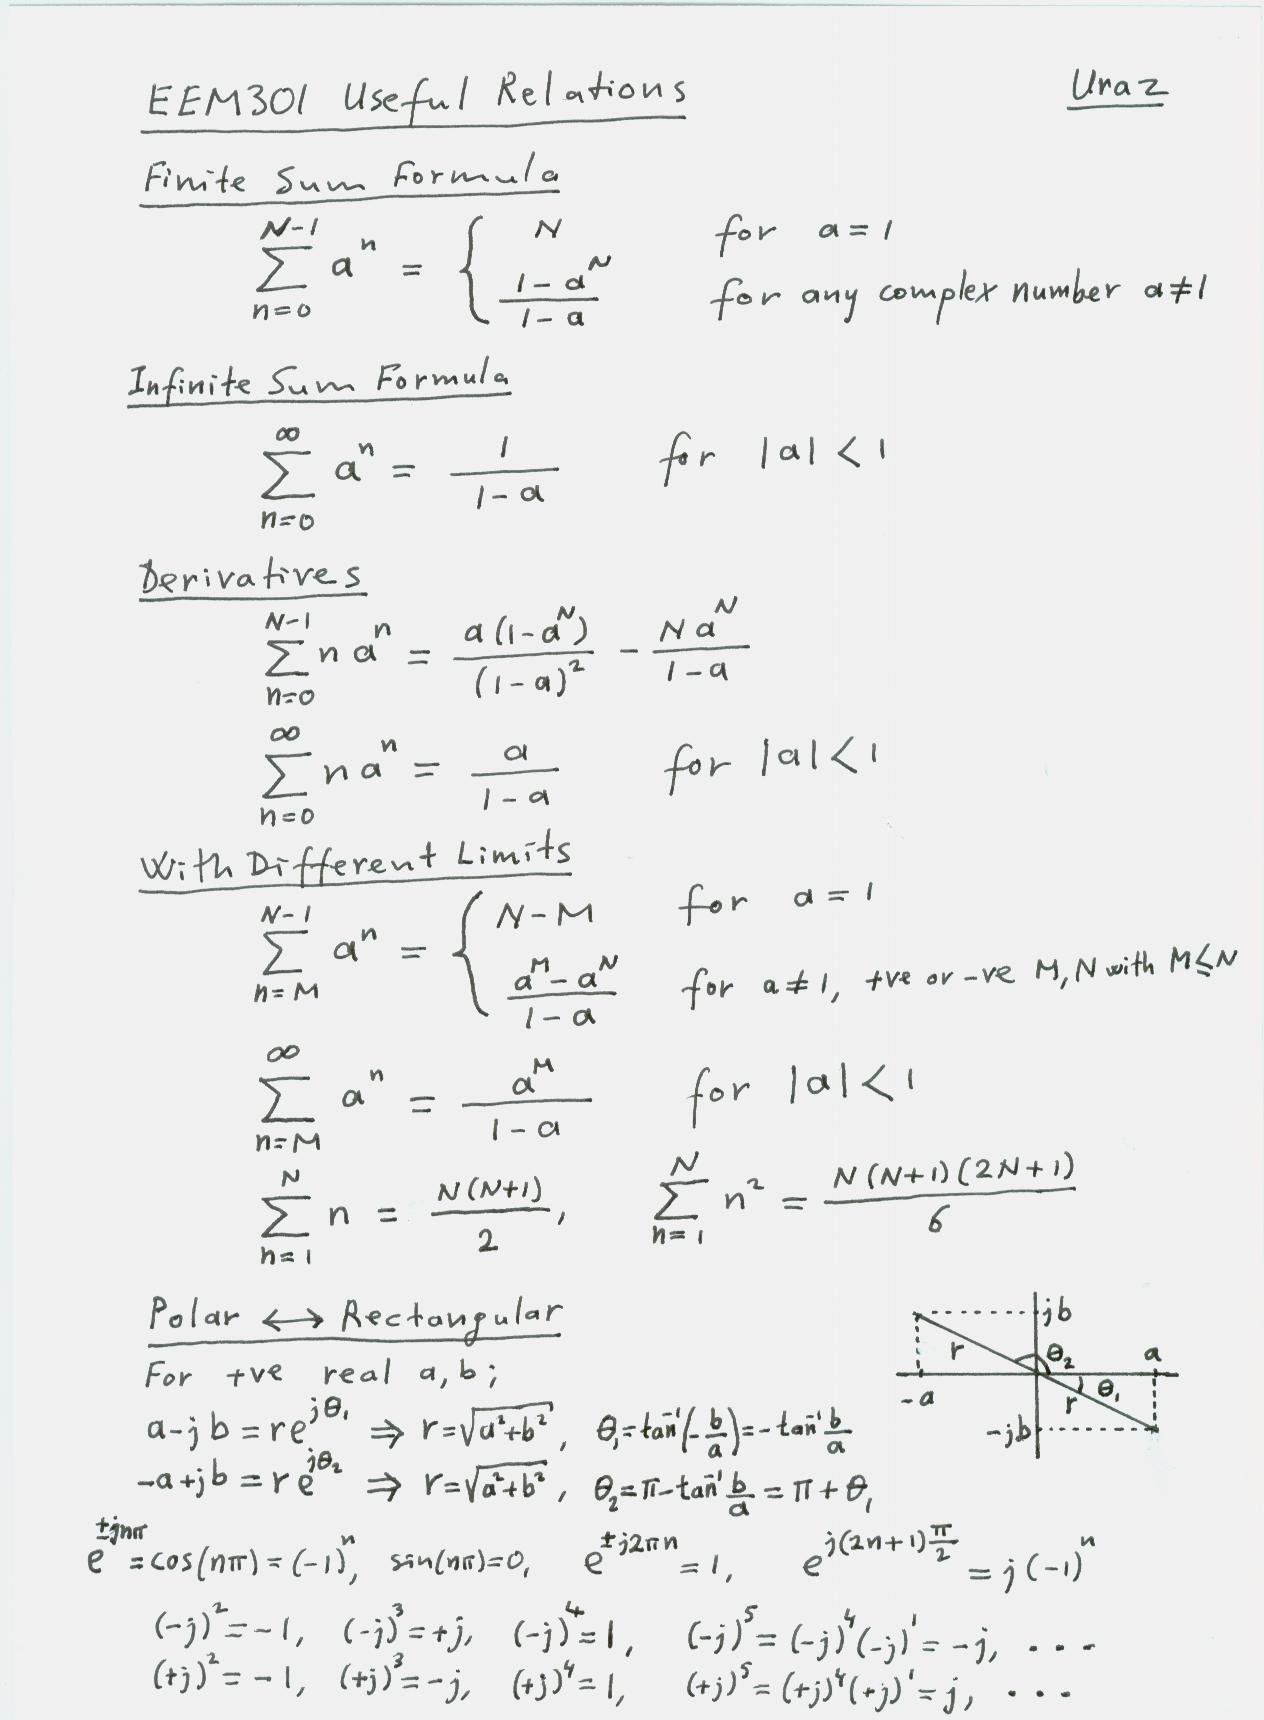 EEM301 Useful Relations Uraz
Finite Sum Formula
\sum_{n=0}^{N-1} a^n = { N for a = 1
(1-a^N)/(1-a) for any complex number a≠1
Infinite Sum Formula
\sum_{n=0}^{∞} a^n = 1/(1-a) for |a| < 1
Derivatives
\sum_{n=0}^{N-1} n a^n = a(1-a^N)/(1-a)^2 - N a^N/(1-a)
\sum_{n=0}^{∞} n a^n = a/(1-a) for |a| < 1
With Different Limits
\sum_{n=M}^{N-1} a^n = { N-M for a = 1
(a^M - a^N)/(1-a) for a≠1, +ve or -ve M, N with M≤N
\sum_{n=M}^{∞} a^n = a^M/(1-a) for |a| < 1
\sum_{n=1}^{N} n = N(N+1)/2, \sum_{n=1}^{N} n^2 = N(N+1)(2N+1)/6
Polar ↔ Rectangular
For +ve real a, b;
a-jb = re^{jθ₁} ⇒ r=√(a²+b²), θ₁=tan⁻¹(-b/a)=-tan⁻¹ b/a
-a+jb = re^{jθ₂} ⇒ r=√(a²+b²), θ₂=π-tan⁻¹ b/a = π+θ₁
jb
r θ₂ a
-a r θ₁
-jb
e^{±jnπ} = cos(nπ) = (-1)^n, sin(nπ)=0, e^{±j2πn} = 1, e^{j(2n+1)π/2} = j(-1)^n
(-j)^2 = -1, (-j)^3 = +j, (-j)^4 = 1, (-j)^5 = (-j)^4(-j)^1 = -j, ...
(+j)^2 = -1, (+j)^3 = -j, (+j)^4 = 1, (+j)^5 = (+j)^4(+j)^1 = j, ...